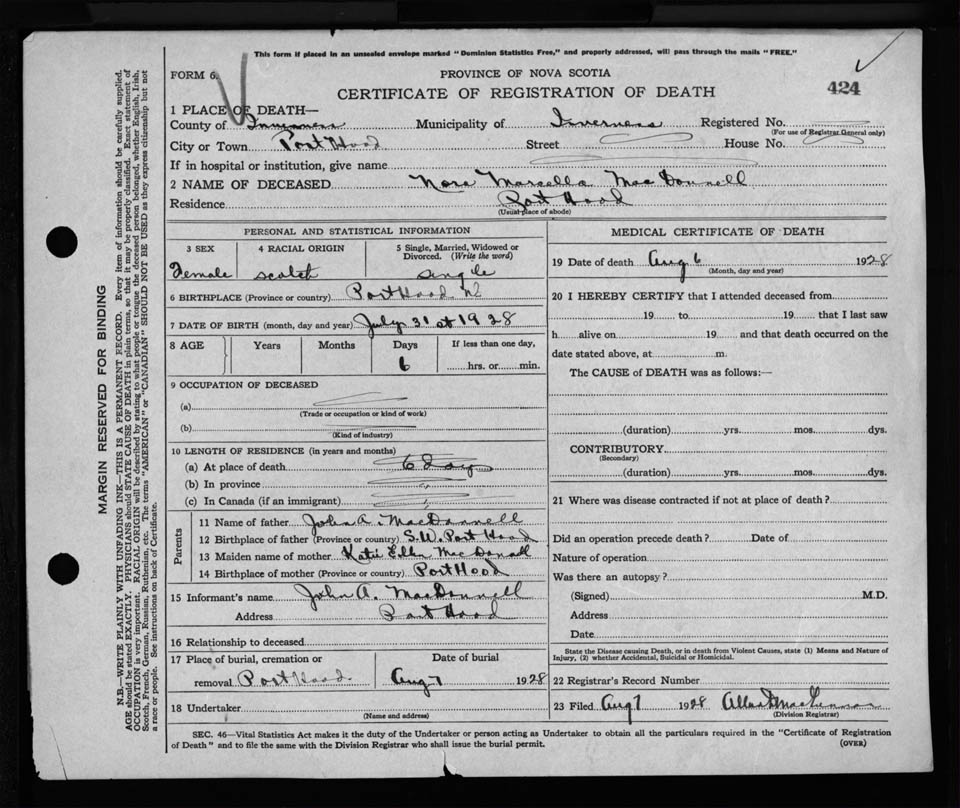 This form if placed in an unsealed envelope marked "Dominion Statistics Free," and properly addressed, will pass through the mails "FREE."
FORM 6.
PROVINCE OF NOVA SCOTIA
CERTIFICATE OF REGISTRATION OF DEATH
424
1 PLACE OF DEATH—
County of Inverness Municipality of Inverness Registered No.
(For use of Registrar General only)
City or Town Port Hood Street House No.
If in hospital or institution, give name
2 NAME OF DECEASED Nora Marcella MacDonnell
Residence Port Hood
(Usual place of abode)
PERSONAL AND STATISTICAL INFORMATION
3 SEX 4 RACIAL ORIGIN 5 Single, Married, Widowed or Divorced. (Write the word)
Female scotch single
6 BIRTHPLACE (Province or country) Port Hood NS
7 DATE OF BIRTH (month, day and year) July 31 st 1928
8 AGE Years Months Days If less than one day,
6 hrs. or min.
9 OCCUPATION OF DECEASED
(a)
(Trade or occupation or kind of work)
(b)
(Kind of industry)
10 LENGTH OF RESIDENCE (in years and months)
(a) At place of death 6 day
(b) In province
(c) In Canada (if an immigrant)
Parents
11 Name of father John A. MacDonnell
12 Birthplace of father (Province or country) S.W. Port Hood
13 Maiden name of mother Katie Ellen MacDonell
14 Birthplace of mother (Province or country) Port Hood
15 Informant's name John A. MacDonnell
Address Port Hood
16 Relationship to deceased
17 Place of burial, cremation or removal Port Hood
Date of burial
Aug 7 1928
18 Undertaker
(Name and address)
MEDICAL CERTIFICATE OF DEATH
19 Date of death Aug 6 1928
(Month, day and year)
20 I HEREBY CERTIFY that I attended deceased from
19 to 19 that I last saw
h alive on 19 and that death occurred on the
date stated above, at m.
The CAUSE of DEATH was as follows:—
(duration) yrs. mos. dys.
CONTRIBUTORY
(Secondary)
(duration) yrs. mos. dys.
21 Where was disease contracted if not at place of death?
Did an operation precede death? Date of
Nature of operation
Was there an autopsy?
(Signed) M.D.
Address
Date
State the Disease causing Death, or in death from Violent Causes, state (1) Means and Nature of
Injury, (2) whether Accidental, Suicidal or Homicidal.
22 Registrar's Record Number
23 Filed Aug 7 1928
(Division Registrar)
SEC. 46—Vital Statistics Act makes it the duty of the Undertaker or person acting as Undertaker to obtain all the particulars required in the "Certificate of Registration
of Death" and to file the same with the Division Registrar who shall issue the burial permit.
(OVER)
MARGIN RESERVED FOR BINDING
N.B.—WRITE PLAINLY WITH UNFADING INK—THIS IS A PERMANENT RECORD. Every item of information should be carefully supplied.
AGE should be stated EXACTLY. PHYSICIANS should STATE CAUSE OF DEATH in plain terms, so that it may be properly classified. Exact statement of
OCCUPATION is very important. RACIAL ORIGIN will be described by stating to what people or tongue the deceased person belonged, whether English, Irish,
Scotch, French, German, Russian, Ruthenian, etc. The terms "AMERICAN" or "CANADIAN" SHOULD NOT BE USED as they express citizenship but not
a race or people. See instructions on back of Certificate.